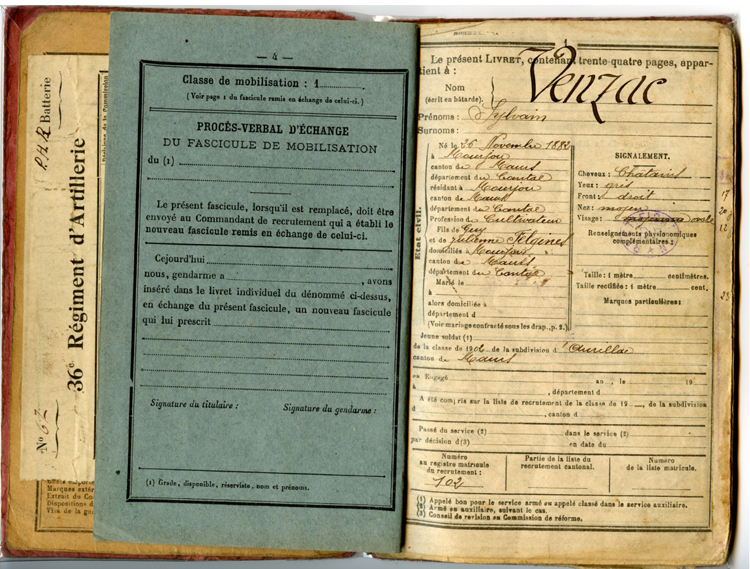 P.H.R Batterie
36e Régiment d'Artillerie
No 62
Marques extér
Extrait du Co
Dispositions d
Visa de la gu
— 4 —
Classe de mobilisation : 1
(Voir page 1 du fascicule remis en échange de celui-ci.)
PROCÈS-VERBAL D'ÉCHANGE
DU FASCICULE DE MOBILISATION
du (1)
Le présent fascicule, lorsqu'il est remplacé, doit être
envoyé au Commandant de recrutement qui a établi le
nouveau fascicule remis en échange de celui-ci.
Cejourd'hui
nous, gendarme à , avons
inséré dans le livret individuel du dénommé ci-dessus,
en échange du présent fascicule, un nouveau fascicule
qui lui prescrit
Signature du titulaire : Signature du gendarme :
(1) Grade, disponible, réserviste, nom et prénoms.
Le présent LIVRET, contenant trente-quatre pages, appar-
tient à :
Nom Venzac
(écrit en bâtarde).
Prénoms : Sylvain
Surnoms :
État civil.
Né le 26 Novembre 1882
à Mourjou
canton de Maurs
département du Cantal
résidant à Mourjou
canton de Maurs
département du Cantal
Profession de Cultivateur
Fils de Guy
et de Julienne Felgines
domiciliés à Mourjou
canton de Maurs
département du Cantal
Marié le
à
alors domiciliée à
département d
(Voir mariage contracté sous les drap., p. 2.)
SIGNALEMENT.
Cheveux : Chatains
Yeux : gris
Front : droit
Nez : moyen
Visage : ovale
Renseignements physionomiques
complémentaires :
Taille : 1 mètre centimètres.
Taille rectifiée : 1 mètre cent.
Marques particulières :
Jeune soldat (1)
de la classe de 1902 de la subdivision d'Aurillac
canton de Maurs
ou Engagé an , le 19
à , département d
A été compris sur la liste de recrutement de la classe de 19 , de la subdivision
d , canton d
Passé du service (2) dans le service (2)
par décision d(3) en date du
Numéro
au registre matricule
du recrutement :
702
Partie de la liste du
recrutement cantonal.
Numéro
de la liste matricule.
(1) Appelé bon pour le service armé ou appelé classé dans le service auxiliaire.
(2) Armé ou auxiliaire, suivant le cas.
(3) Conseil de revision ou Commission de réforme.